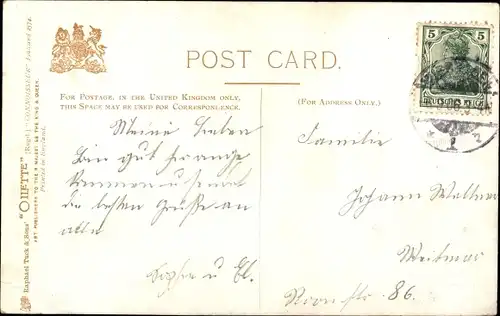 POST CARD.
FOR POSTAGE, IN THE UNITED KINGDOM ONLY,
THIS SPACE MAY BE USED FOR CORRESPONDENCE.
(FOR ADDRESS ONLY.)
5 5
DEUTSCHES REICH
Meine Lieben
Bin gut
kommen u sendet
die besten Grüße an
alle
u El.
Familie
Johann
Weitmar
86.
Raphael Tuck & Sons' "OILETTE" (Regd.) "CONNOISSEUR"
ART PUBLISHERS TO THEIR MAJESTIES THE KING & QUEEN.
Printed in England.